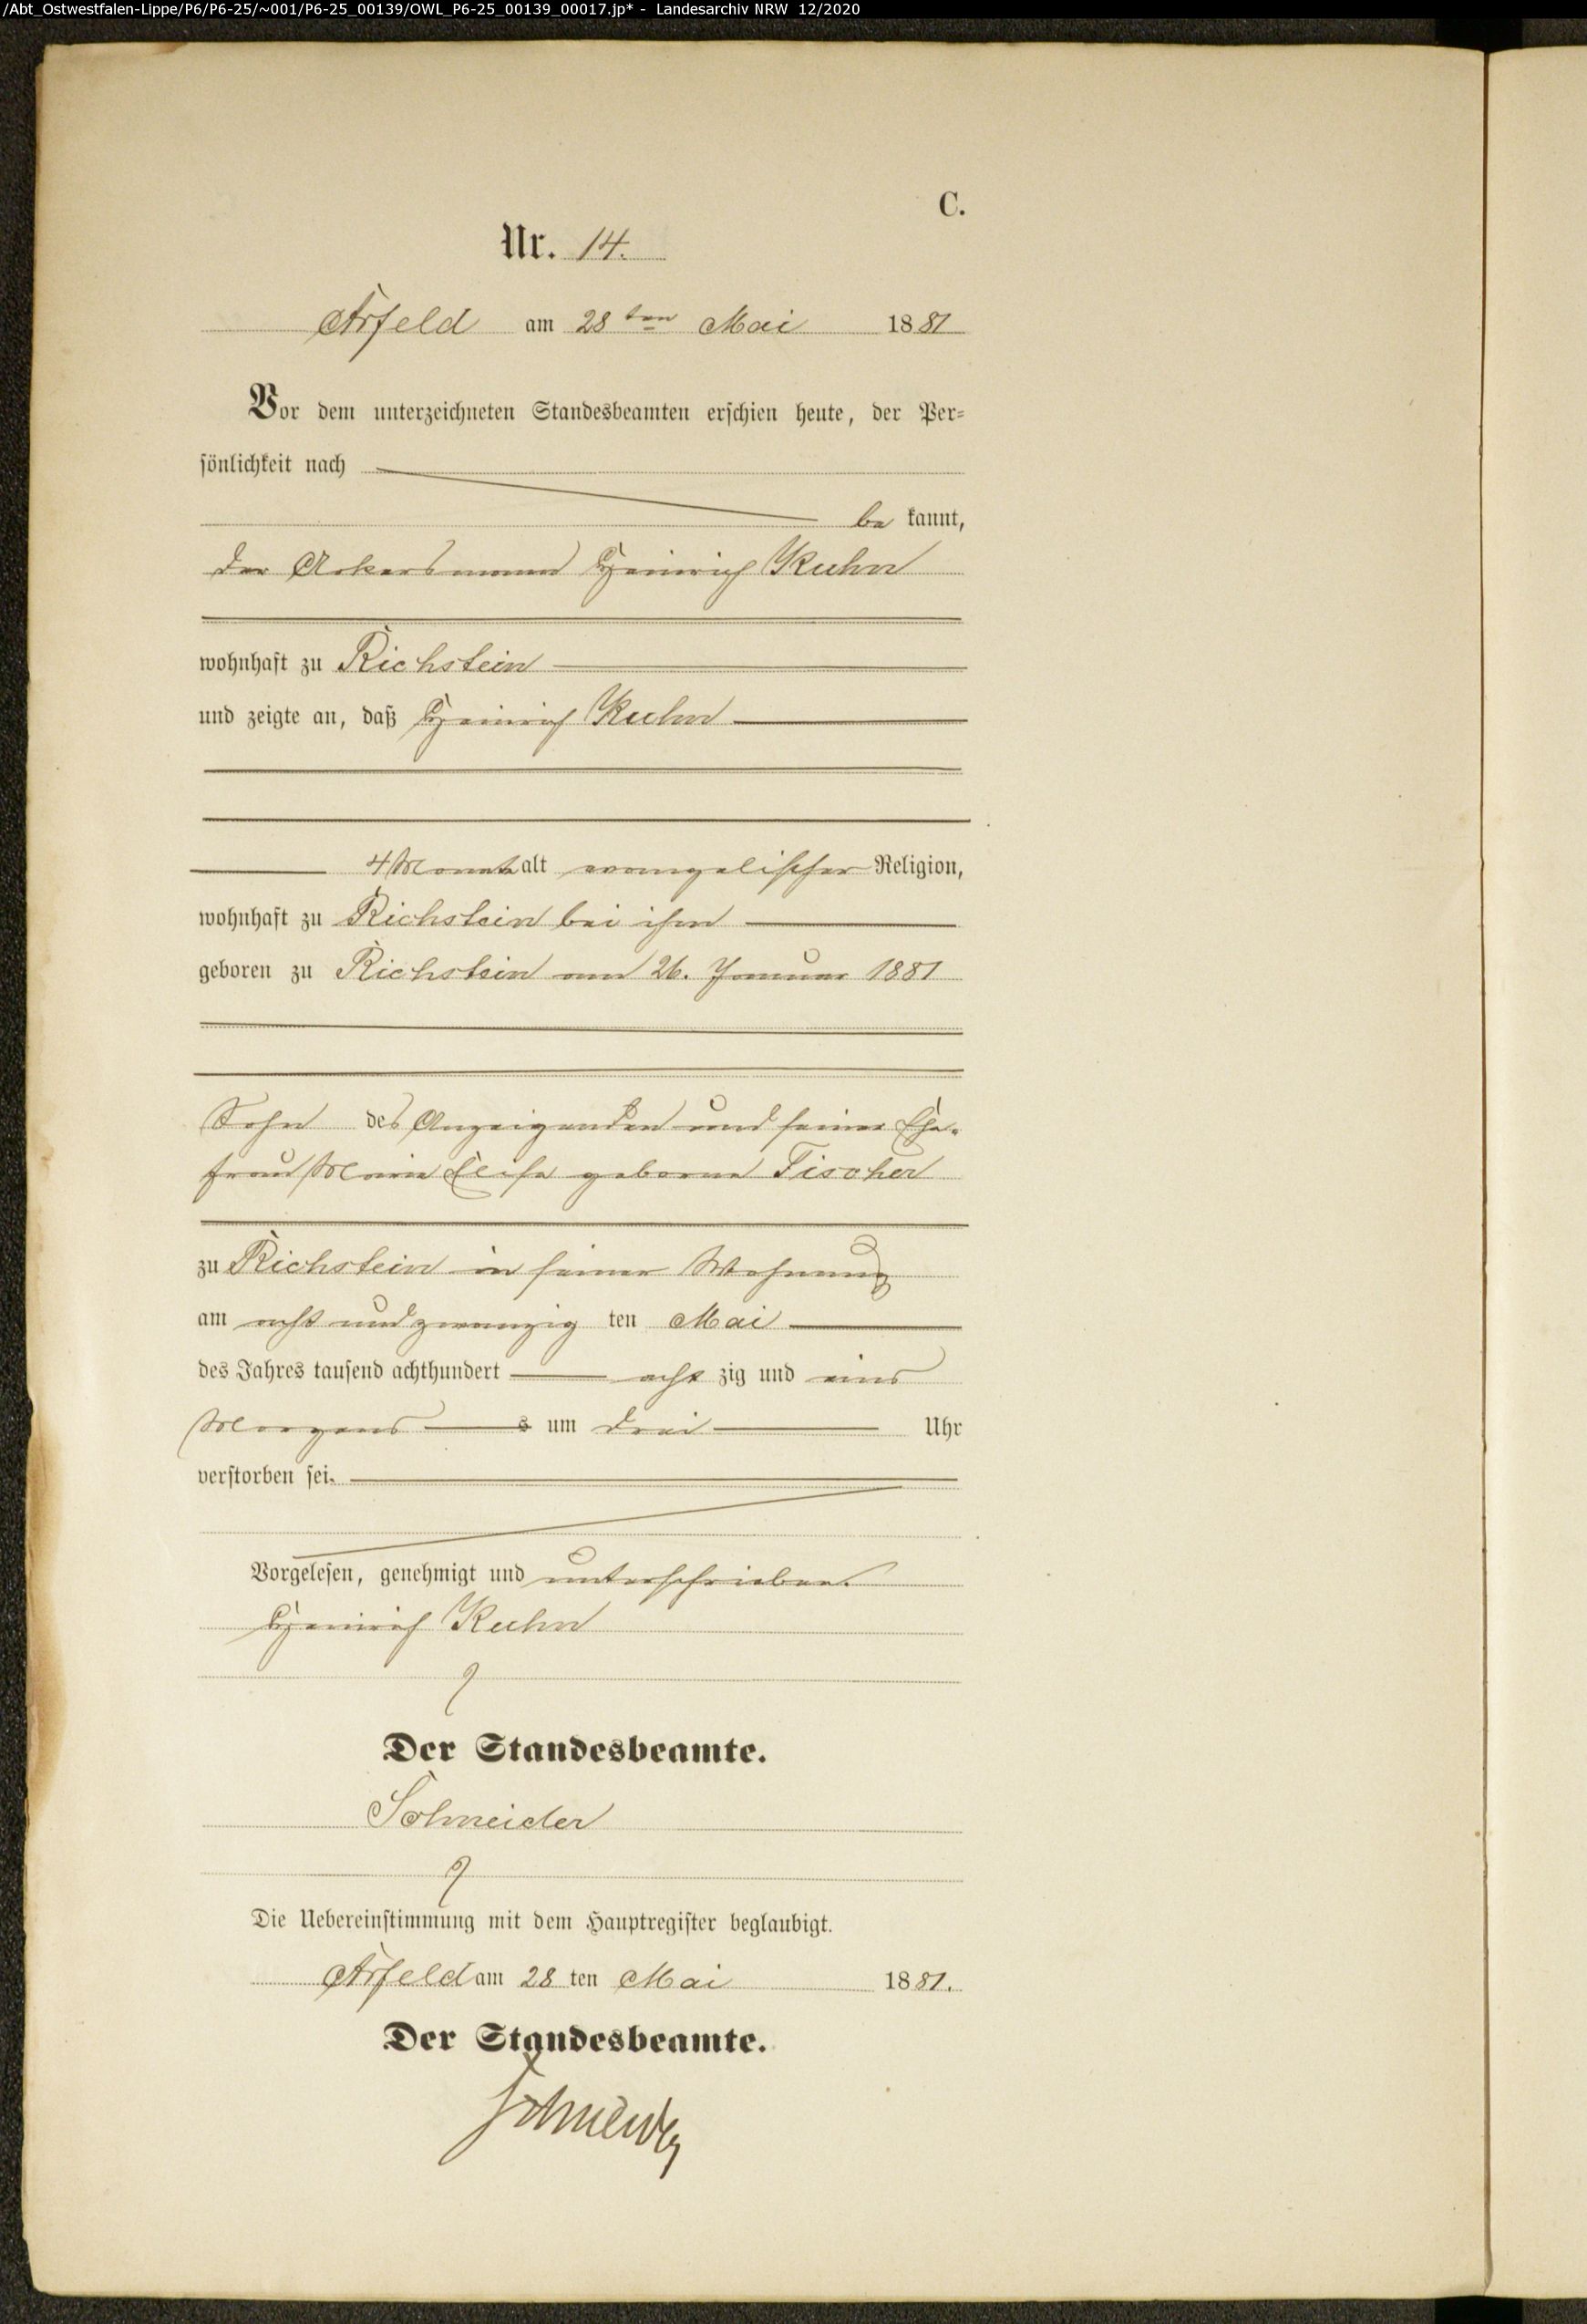 /Abt_Ostwestfalen-Lippe/P6/P6-25/~001/P6-25_00139/OWL_P6-25_00139_00017.jp* - Landesarchiv NRW 12/2020
C.
Nr. 14.
Arfeld am 28ten Mai 1881
Vor dem unterzeichneten Standesbeamten erschien heute, der Per-
sönlichkeit nach
be kannt,
der Ackersmann Heinrich Kuhn
wohnhaft zu Richstein
und zeigte an, daß Heinrich Kuhn
4 Monate alt evangelischer Religion,
wohnhaft zu Richstein bei ihm
geboren zu Richstein am 26. Januar 1881
Sohn des Anzeigenden und seiner Ehe-
frau Marie Elise geborne Fischer
zu Richstein in seiner Wohnung
am acht und zwanzig ten Mai
des Jahres tausend achthundert acht zig und eins
Morgens s um drei Uhr
verstorben sei.
Vorgelesen, genehmigt und unterschrieben.
Heinrich Kuhn
Der Standesbeamte.
Schneider
Die Uebereinstimmung mit dem Hauptregister beglaubigt.
Arfeld am 28 ten Mai 1881.
Der Standesbeamte.
Schneider